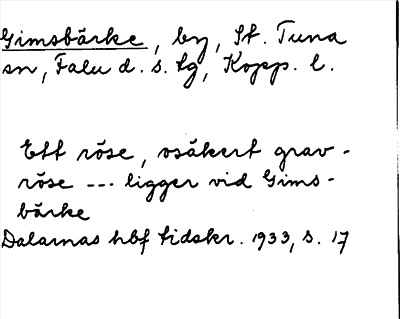 Gimsbärke, by, St. Tuna
sn, Falu d. s. tg, Kopp. l.
Ett röse, osäkert grav-
röse --- ligger vid Gims-
bärke
Dalarnas hbf tidskr. 1933, s. 17